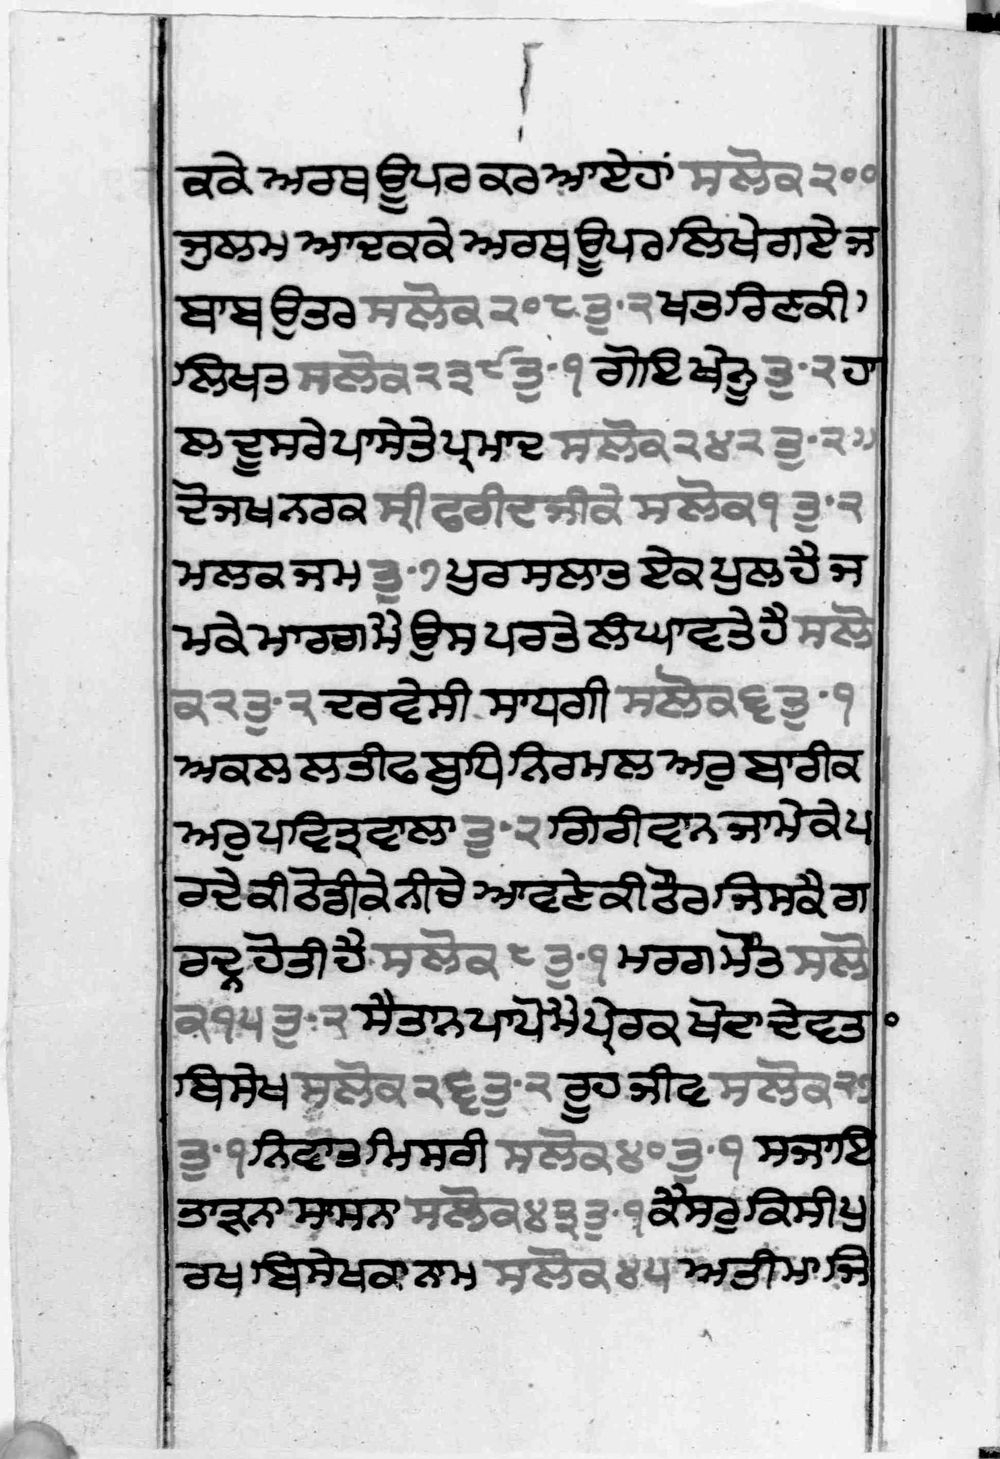 ਕਕੇ ਅਰਥ ਊਪਰ ਕਰ ਆਏਹਾਂ ਸਲੋਕ ੨੦੦
ਜੁਲਮ ਆਦਕਕੇ ਅਰਥ ਊਪਰ ਲਿਖੇ ਗਏ ਜ
ਬਾਬ ਉਤਰ ਸਲੋਕ ੨੦੮ ਤੁ੦੨ ਖਤ ਰਿਣਕੀ
ਲਿਖਤ ਸਲੋਕ ੨੩੯ ਤੁ੦੧ ਗੋਇ ਖੇਨੂ ਤੁ੦੨ ਹਾ
ਲ ਦੂਸਰੇ ਪਾਸੇ ਤੇ ਪ੍ਰਮਾਦ ਸਲੋਕ ੨੪੨ ਤੁ੦੨
ਦੋਜਖ ਨਰਕ ਸ੍ਰੀ ਫਰੀਦ ਜੀਕੇ ਸਲੋਕ ੧ ਤੁ੦੨
ਮਲਕ ਜਮ ਤੁ੦੭ ਪੁਰ ਸਲਾਤ ਏਕ ਪੁਲ ਹੈ ਜ
ਮਕੇ ਮਾਰਗ ਮੈ ਉਸ ਪਰਤੇ ਲੰਘਾਵਤੇ ਹੈ ਸਲੋ
ਕ ੨ ਤੁ੦੨ ਦਰਵੇਸੀ ਸਾਧਗੀ ਸਲੋਕ ੬ ਤੁ੦੧
ਅਕਲ ਲਤੀਫ ਬੁਧਿ ਨਿਰਮਲ ਅਰੁ ਬਾਰੀਕ
ਅਰੁ ਪਵਿਤ੍ਰ ਵਾਲਾ ਤੁ੦੨ ਗਿਰੀਵਾਨ ਜਾਮੇ ਕੇ ਪ
ਰਦੇ ਕੀ ਠੋਡੀਕੇ ਨੀਚੇ ਆਵਣੇ ਕੀ ਠੌਰ ਜਿਸਕੈ ਗ
ਰਦ੍ਨ ਹੋਤੀ ਹੈ ਸਲੋਕ ੮ ਤੁ੦੧ ਮਰਗ ਮੌਤ ਸਲੋ
ਕ ੧੫ ਤੁ੦੨ ਸੈਤਾਨ ਪਾਪੋ ਮੈ ਪ੍ਰੇਰਕ ਖੋਟਾ ਦੇਵਤ
ਬਿਸੇਖ ਸਲੋਕ ੨੬ ਤੁ੦੨ ਰੂਹ ਜੀਵ ਸਲੋਕ ੨੭
ਤੁ੦੧ ਨਿਵਾਤ ਮਿਸਰੀ ਸਲੋਕ ੪੦ ਤੁ੦੧ ਸਜਾਇ
ਤਾੜਨਾ ਸਾਸਨਾ ਸਲੋਕ ੪੩ ਤੁ੦੧ ਕੌਸਰੁ ਕਿਸੀ ਪੁ
ਰਖ ਬਿਸੇਖਕਾ ਨਾਮ ਸਲੋਕ ੪੫ ਅਤੀਮਾ ਜਿ